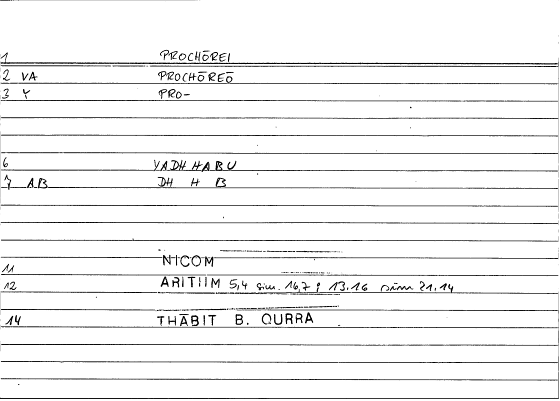 1 PROCHŌREI
2 VA PROCHŌREŌ
3 Y PRO-
6 YADHHABU
7 AB DH H B
11 NICOM
12 ARITIIM 5,4 sim. 16,7; 13.16 21.14
14 THĀBIT B. QURRA